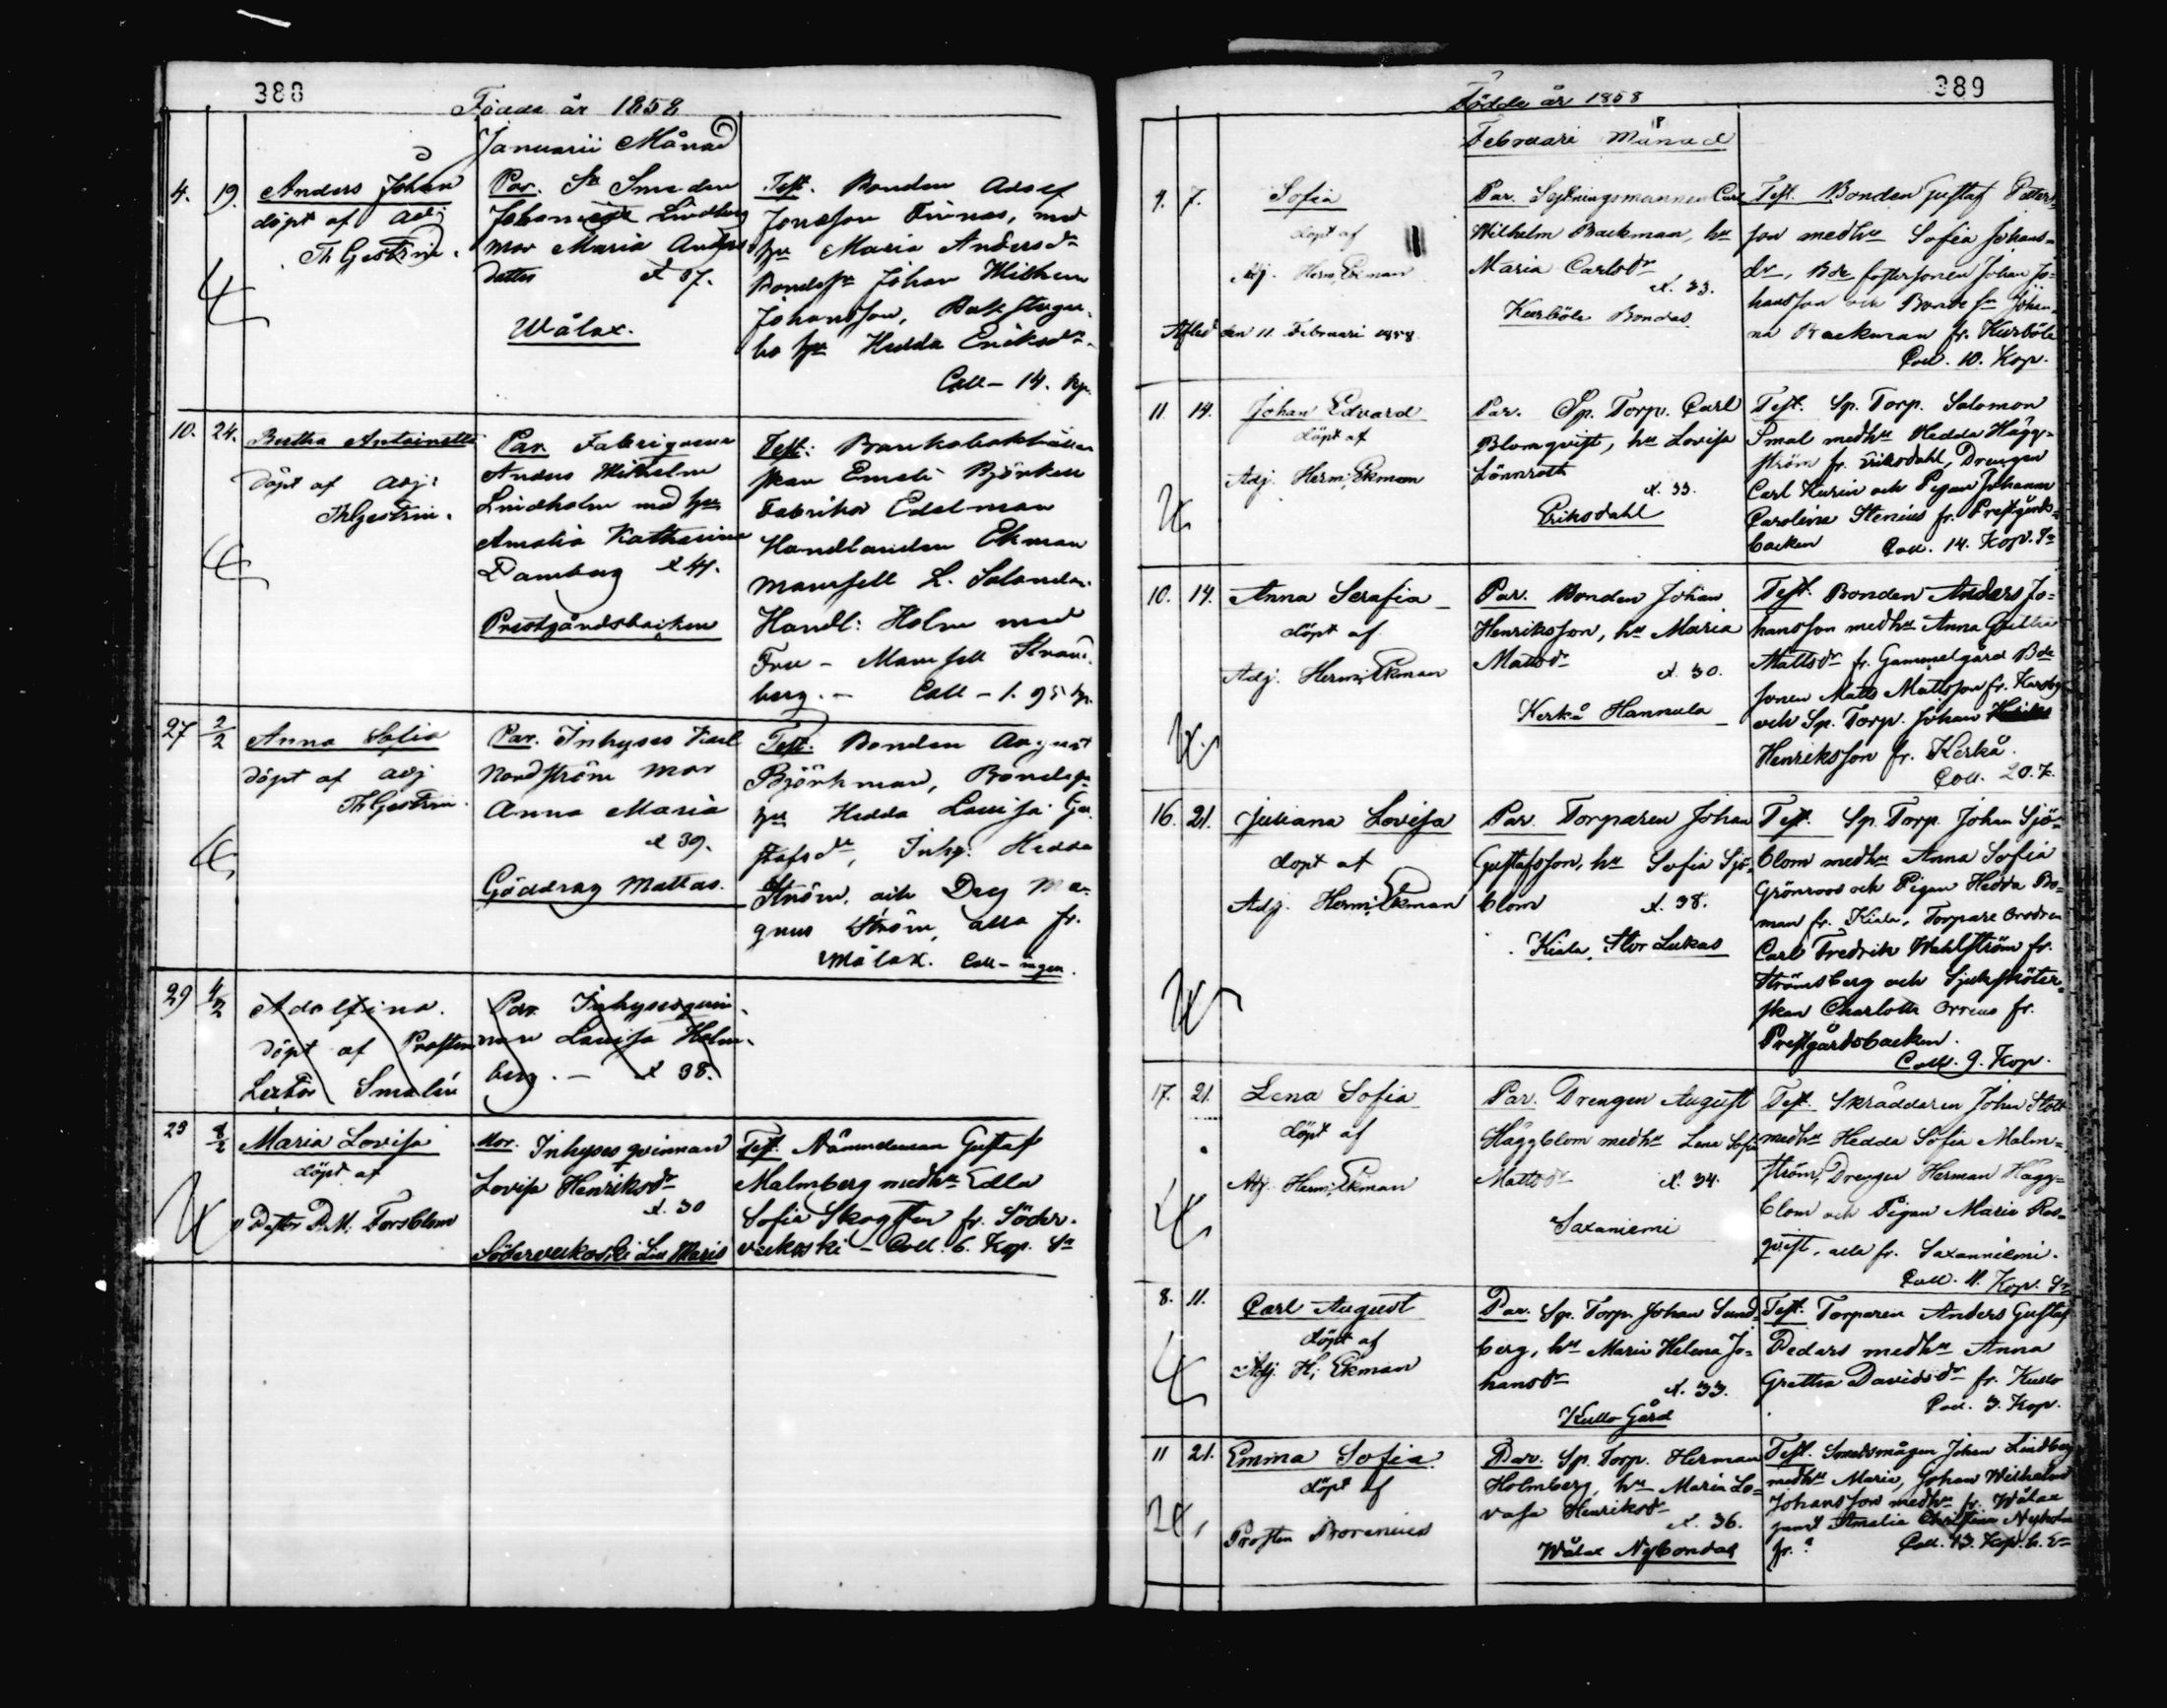 388
Födde år 1858
Januarii Månad
4. 19.
Anders Johan
döpt af Adj
Th Gestrin.
Par. Sn Smeden
Johan Lindberg
mor Maria Anders
dotter æt 37.
Wålax.
Test. Bonden Adolf
Jonasson Finnas, med
hu Maria Andersdr
Bondesn Johan Wilhelm
Johansson,
hu Hedda Eriksdr
Coll – 14. kp.
10. 24.
Bertha Antoinette
döpt af Adj:
Th Gestrin.
Par. Fabriqueur
Anders Wilhelm
Lindholm med hu
Amalia Katharina
Tamberg æt 44.
Prestgårdsbacken
Test: Bankobokhållare
skan Emeli Björkell
Fabrikör Edelman
Handlanden Ekman
Mamsell L. Solander
Handl: Holm med
Fru – Mamsell Strand
berg. – Coll – 1. 95 kp.
27 2/2
Anna Sofia
döpt af Adj
Th Gestrin.
Par. Inhyses Karl
Nordström mor
Anna Maria
æt 39.
Gäddrag Mattas.
Test. Bonden August
Björkman, Bonde
hu Hedda Lovisa Gu
stafsdr, Inhy: Hedda
Ström, och Drg Ma
gnus Ström, alla fr.
Wålax. Coll – ingen.
29 4/2
Adolfina.
döpt af Prosten
Lector Smalén
Par. Inhysesqvin
nan Lovisa Holm
berg. – æt 38.
23 8/2
Maria Lovisa
döpt af
v Pastor D. M. Forsblom
Mor. Inhyses qvinnan
Lovisa Henriksdr
æt. 30
Söderveckoski Lill Maris
Test. Nämndeman Gustaf
Malmberg medhu Edla
Sofia Skogster fr. Söder-
veckoski – Coll. 6. Kop. Sr
389
Födde år 1858
Februari Månad
4. 7.
Sofia
döpt af
Adj. Herm. Ekman
Afled den 11. Februari 1858.
Par. Sexlningsmannen Carl
Wilhelm Backman, hu
Maria Carlsdr
æt. 33.
Kurböle Bondas
Test. Bonden Gustaf Peters-
son medhu Sofia Johans-
dr, Bde fostersonen Johan Jo-
hansson och Bonde Johan-
na Backman fr. Kurböle
Coll. 10. Kop.
11. 14.
Johan Edvard
döpt af
Adj. Herm. Ekman
Par. Sp. Torp. Carl
Blomqvist, hu Lovisa
Lönnroth
æt. 33.
Eriksdahl
Test. Sp. Torp. Salomon
Smal medhu Hedda Hägg-
ström fr. Eriksdahl, Drengen
Carl Kurin och Pigan Johanna
Carolina Stenius fr. Prestgårds-
backen Coll. 14. Kop. Sr
10. 14.
Anna Serafia
döpt af
Adj. Herm. Ekman
Par. Bonden Johan
Henriksson, hu Maria
Mattsdr
æt. 30.
Kerkå Hannula
Test. Bonden Anders Jo-
hansson medhu Anna Gretha
Mattsdr fr. Gammelgård Bde
sonen Matts Mattsson fr. Karsby
och Sp. Torp. Johan
Henriksson fr. Kerkå.
Coll. 20. K.
16. 21.
Juliana Lovisa
döpt af
Adj. Herm. Ekman
Par. Torparen Johan
Gustafsson, hu Sofia Sjö-
blom æt. 38.
Kiala, Stor Lukas
Test. Sp. Torp. Johan Sjö-
blom medhu Anna Sofia
Grönroos och Pigan Hedda Bo-
man fr. Kiala, Torpare brodren
Carl Fredrik Wahlström fr.
Strömsberg och Sjukskötter-
skan Charlotta Orreus fr.
Prestgårdsbacken.
Coll. 9. Kop.
17. 21.
Lena Sofia
döpt af
Adj. Herm. Ekman
Par. Drengen August
Häggblom medhu Lena Sofia
Mattsdr æt. 34.
Saxaniemi
Test. Skräddaren Johan Stolt
medhu Hedda Sofia Malm-
ström, Drengen Herman Hägg-
blom och Pigan Maria Ros-
qvist, alla fr. Saxaniemi.
Coll. 11. Kop. Sr
8. 11.
Carl August
döpt af
Adj. H. Ekman
Par. Sp. Torp. Johan Sund-
berg, hu Maria Helena Jo-
hansdr æt. 33.
Kullo Gård
Test. Torparen Anders Gustaf
Peders medhu Anna
Gretha Davidsdr fr. Kullo
Coll. 3. Kop.
11 21.
Emma Sofia
döpt af
Prosten Borenius
Par. Sp. Torp. Herman
Holmberg, hu Maria Lo-
visa Henriksdr
æt. 36.
Wålax Nybondas
Test. Smedsmågen Johan Lindberg
medhu Maria, Johan Wilhelm
Johansson medhu fr. Wålax
samt Amalia Christina Nyholm
fr. ? Coll. 13. Kop.